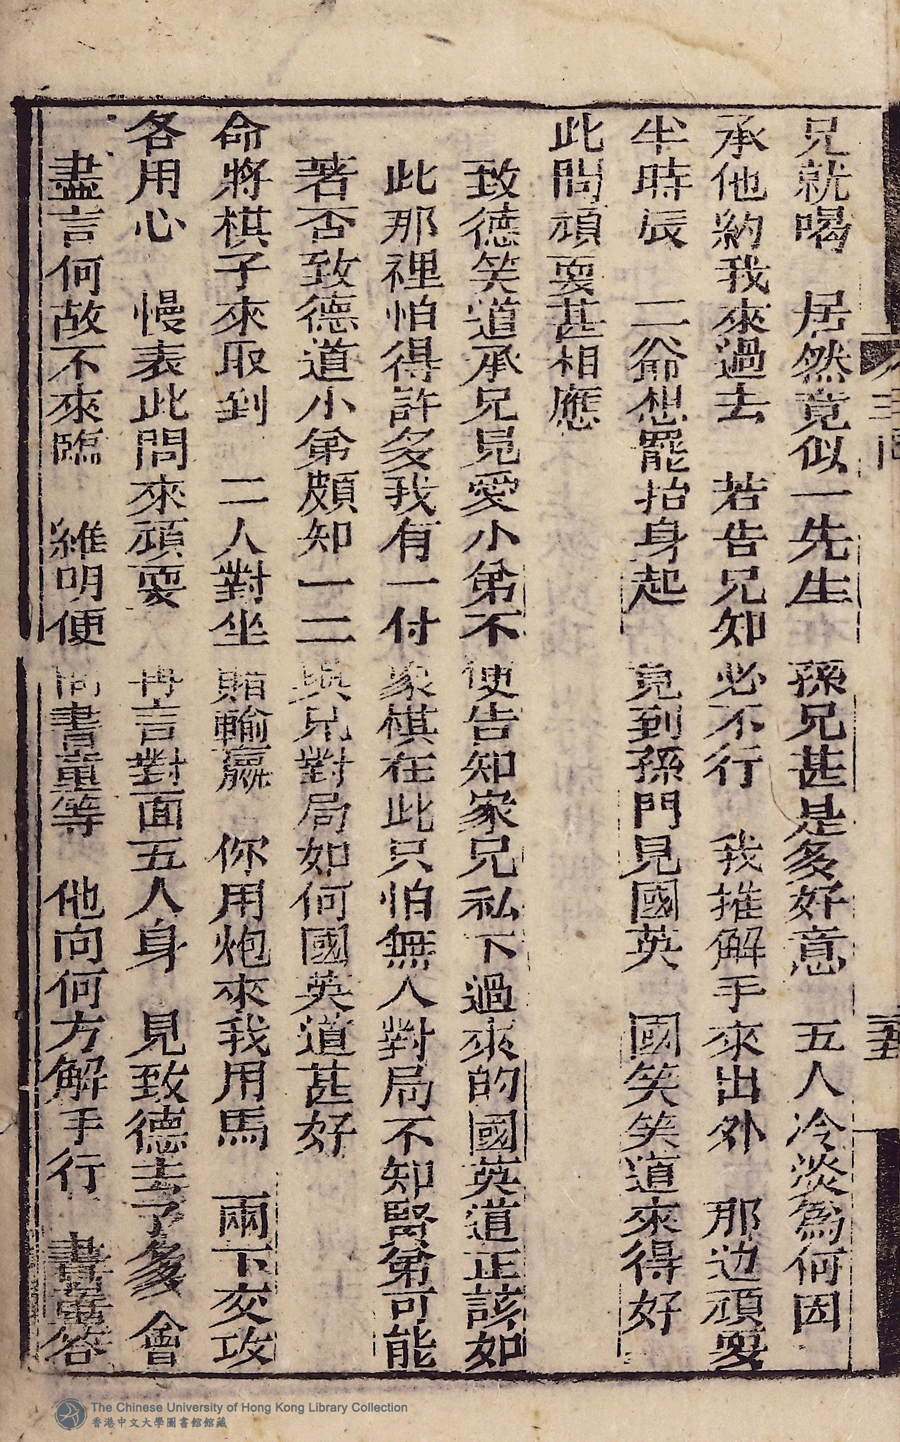 兄就喝　居然竟似一先生　孫兄甚是多好意　五人冷淡為何因
承他約我來過去　若告兄知必不行　我推解手來出外　那边頑耍
半時辰　二爺想罷抬身起　竟到孫門見國英　國笑笑道來得好
此間頑耍甚相應
致德笑道承兄見愛小弟不便告知家兄私下過來的國英道正該如
此那裡怕得許多我有一付象棋在此只怕無人對局不知賢弟可能
著否致德道小弟頗知一二與兄對局如何國英道甚好
命將棋子來取到　二人對坐賭輸贏　你用炮來我用馬　兩下交攻
各用心　慢表此間來頑耍　再言對面五人身　見致德去了多　會
盡言何故不來臨　維明便問書童等　他向何方解手行　書童答
三回
The Chinese University of Hong Kong Library Collection
香港中文大學圖書館館藏